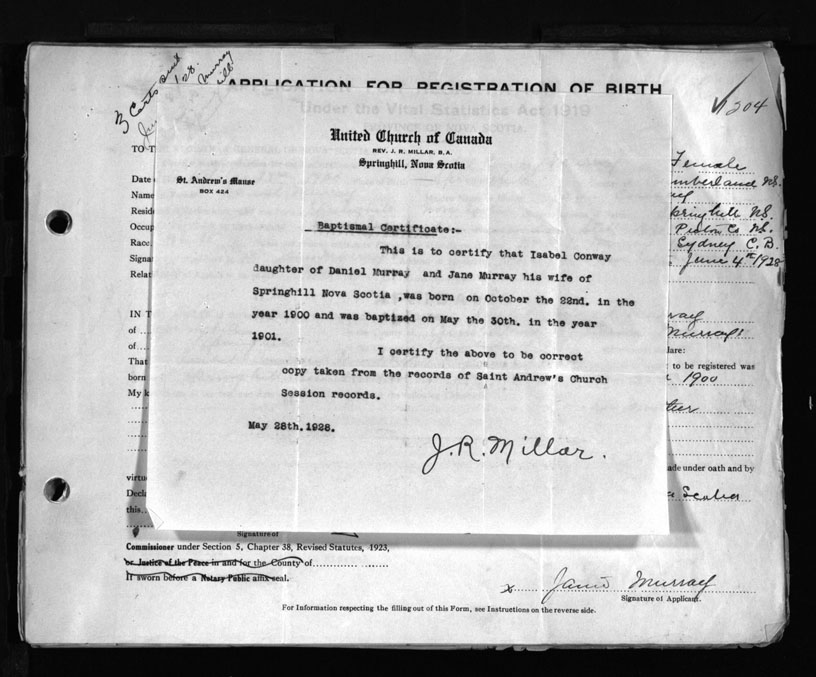 3 Certs sent
Murray
APPLICATION FOR REGISTRATION OF BIRTH
Under the Vital Statistics Act 1919
1204
TO T
United Church of Canada
REV. J. R. MILLAR, B. A.
Springhill, Nova Scotia
St. Andrew's Manse
BOX 424
Date
Name
Reside
Occup
Race.
Signa
Relat
Female
mberland NS.
ay
pringhill NS.
Pictou Co NS.
Sydney C. B.
June 4th 1928
Baptismal Certificate:-
This is to certify that Isabel Conway
daughter of Daniel Murray and Jane Murray his wife of
Springhill Nova Scotia ,was born on October the 22nd. in the
year 1900 and was baptized on May the 30th. in the year
1901.
I certify the above to be correct
copy taken from the records of Saint Andrew's Church
Session records.
May 28th.1928.
J. R. Millar.
IN T
of
of
That
born
My k
ray
Murray
lare:
to be registered was
1900
ade under oath and by
a Scotia
virtu
Decla
this
Signature of
Commissioner under Section 5, Chapter 38, Revised Statutes, 1923,
or Justice of the Peace in and for the County of
If sworn before a Notary Public affix seal.
x Jane Murray
Signature of Applicant.
For Information respecting the filling out of this Form, see Instructions on the reverse side.